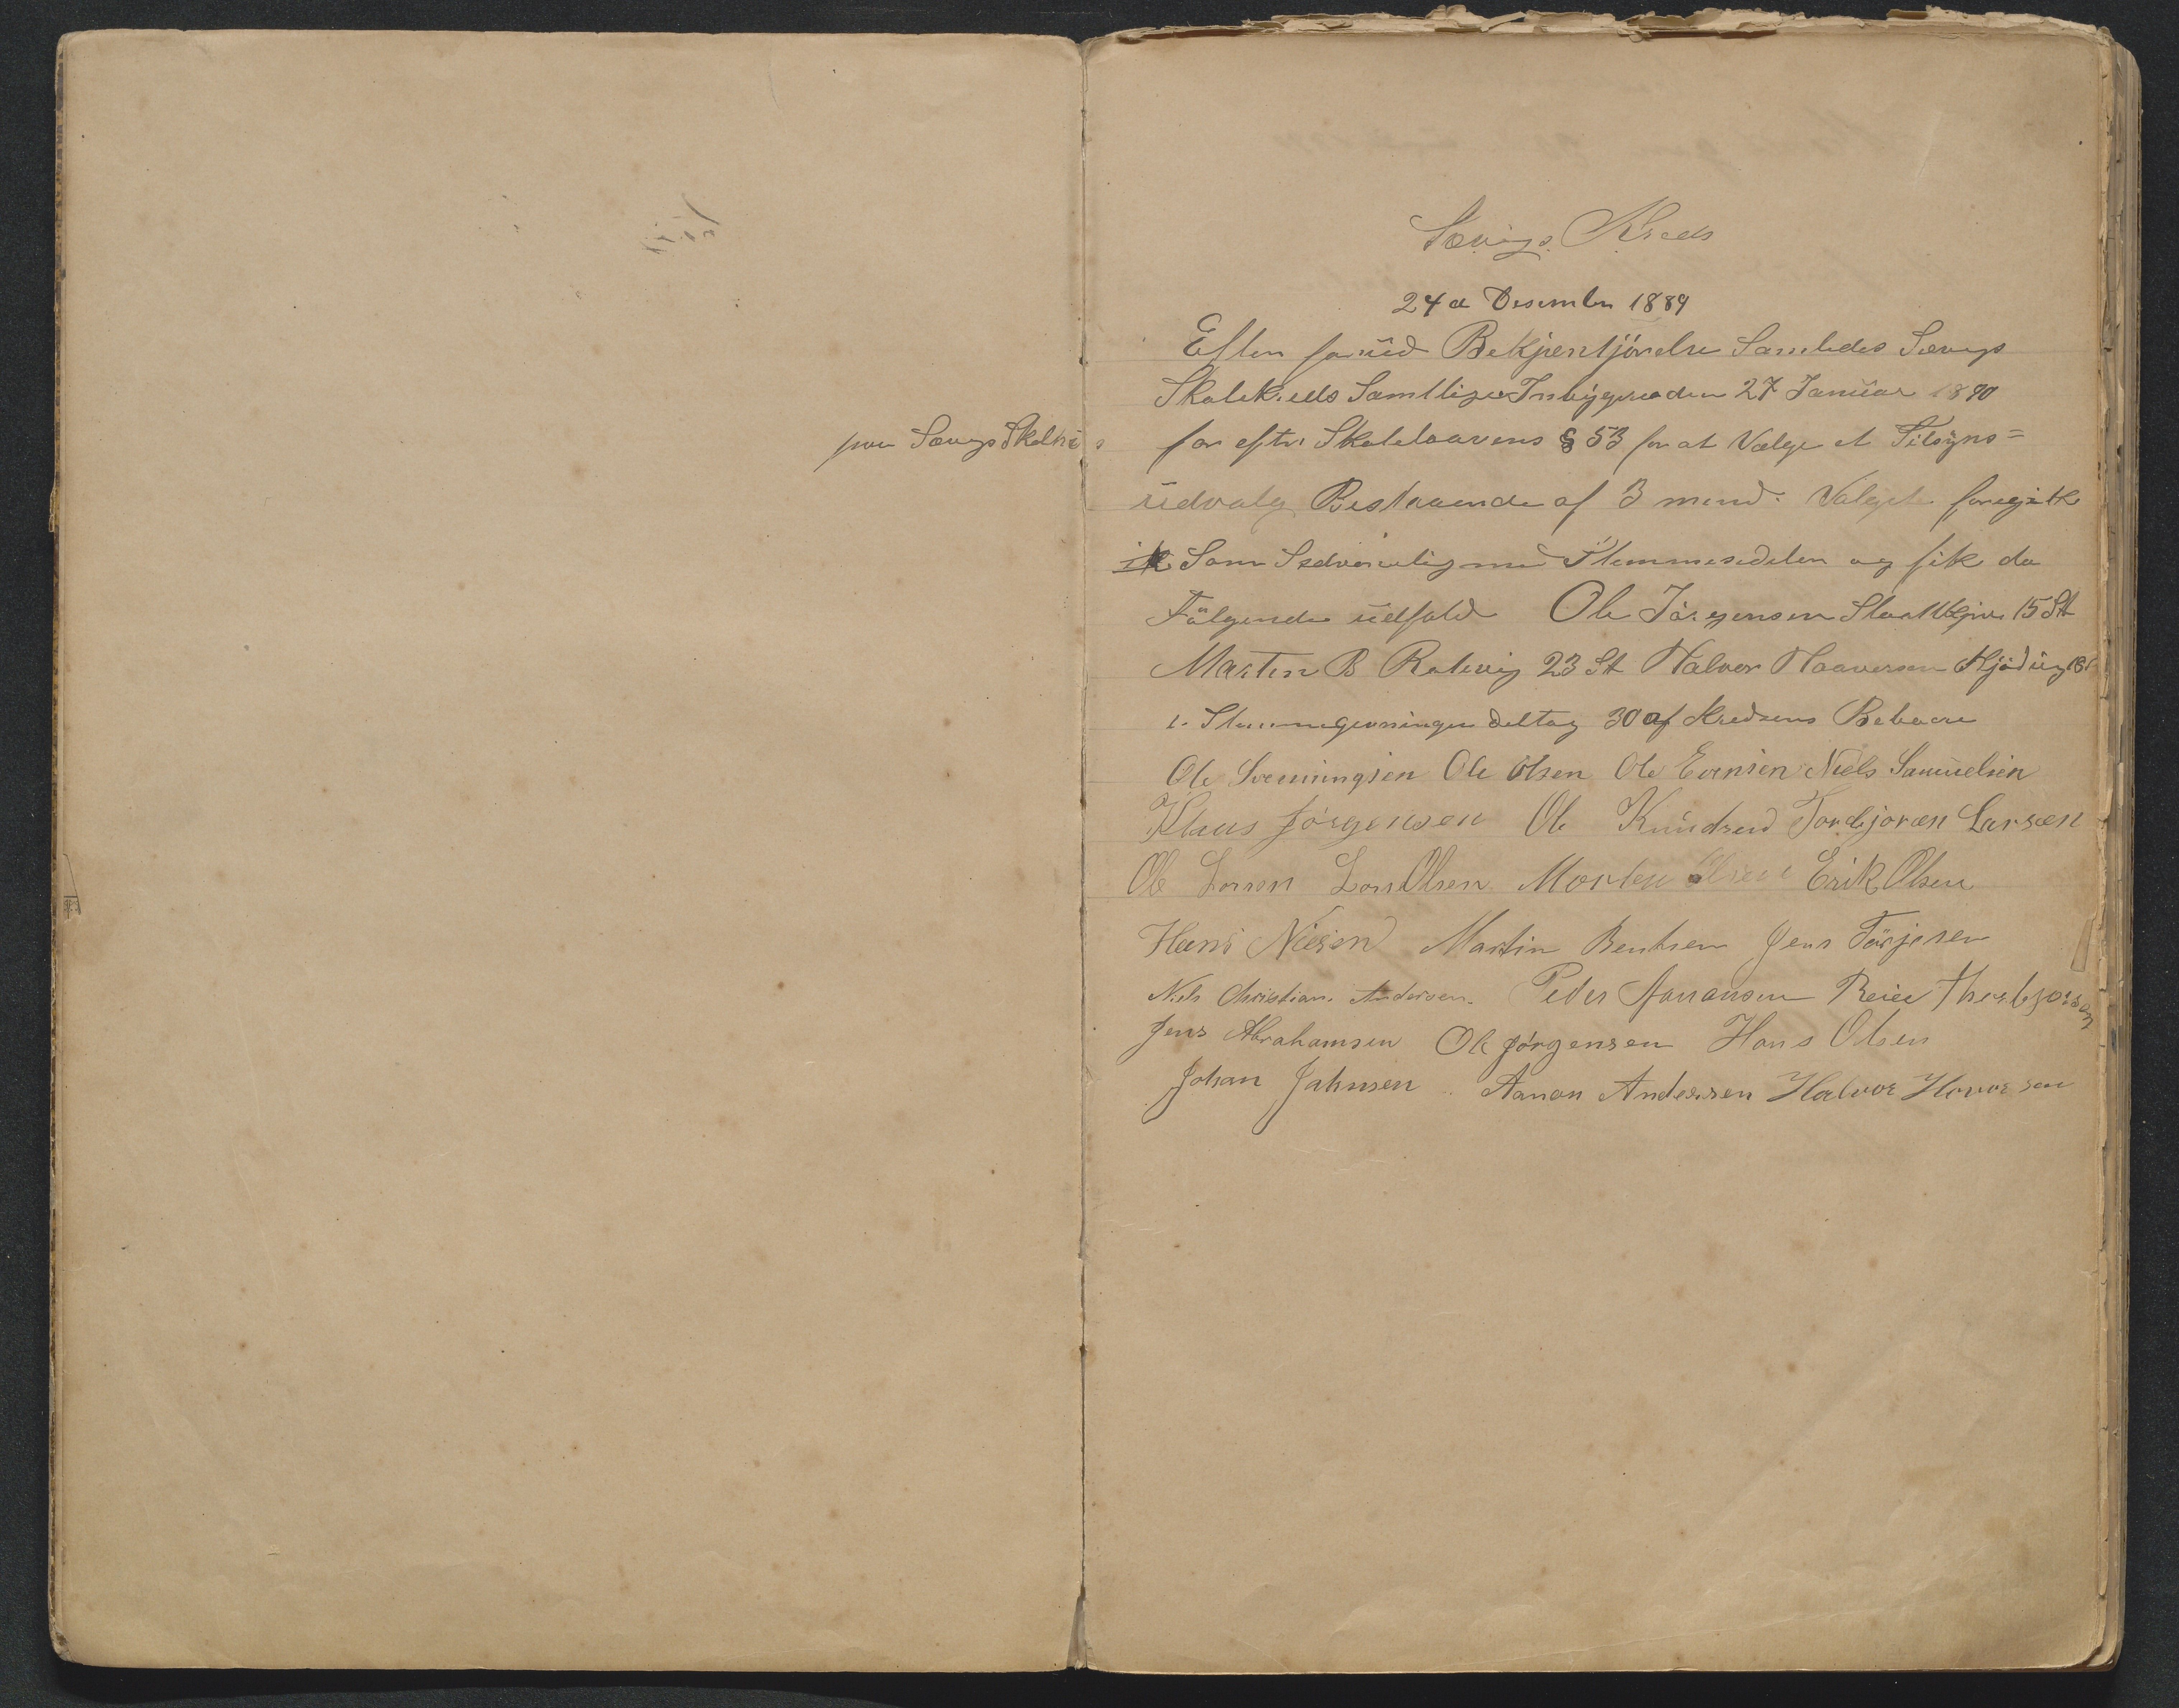 Sævigs Kreds
24de Desember 1889
Efter forud Bekjentjörelse Samledes Sævigs
Skolekreds Samtlige Inbyggere den 27 Januar 1890
paa Sævigs Skolhus for efter Skoleloavens § 53 for at Vælge et Tilsyns=
udvalg Bestaaende af 3 mend. Valget foregik
Som Sedvanlig med Stemmesedeler og fik da
Fölgende udfald Ole Jörgensen 15 St
Martin B Rølevig 23 St Halvor Haaversen
i Stemmegivningen deltog 30 af Kredsens Beboere
Ole Svenningsen Ole Olsen Ole Evensen Niels Samuelsen
Klaus Jörgensen Ole Knudsen Tordjoren Larsen
Ole Larsen Lars Olsen Morten Olsen Erik Olsen
Hans Nielsen Martin Bentsen Jens Tarjesen
Niels Christian Andersen. Peder Aanansen Reier Therbjorsen
Jens Abrahamsen Ole Jörgensen Hans Olsen
Johan Jahnsen Aanon Anderssen Halvor Hovorsen